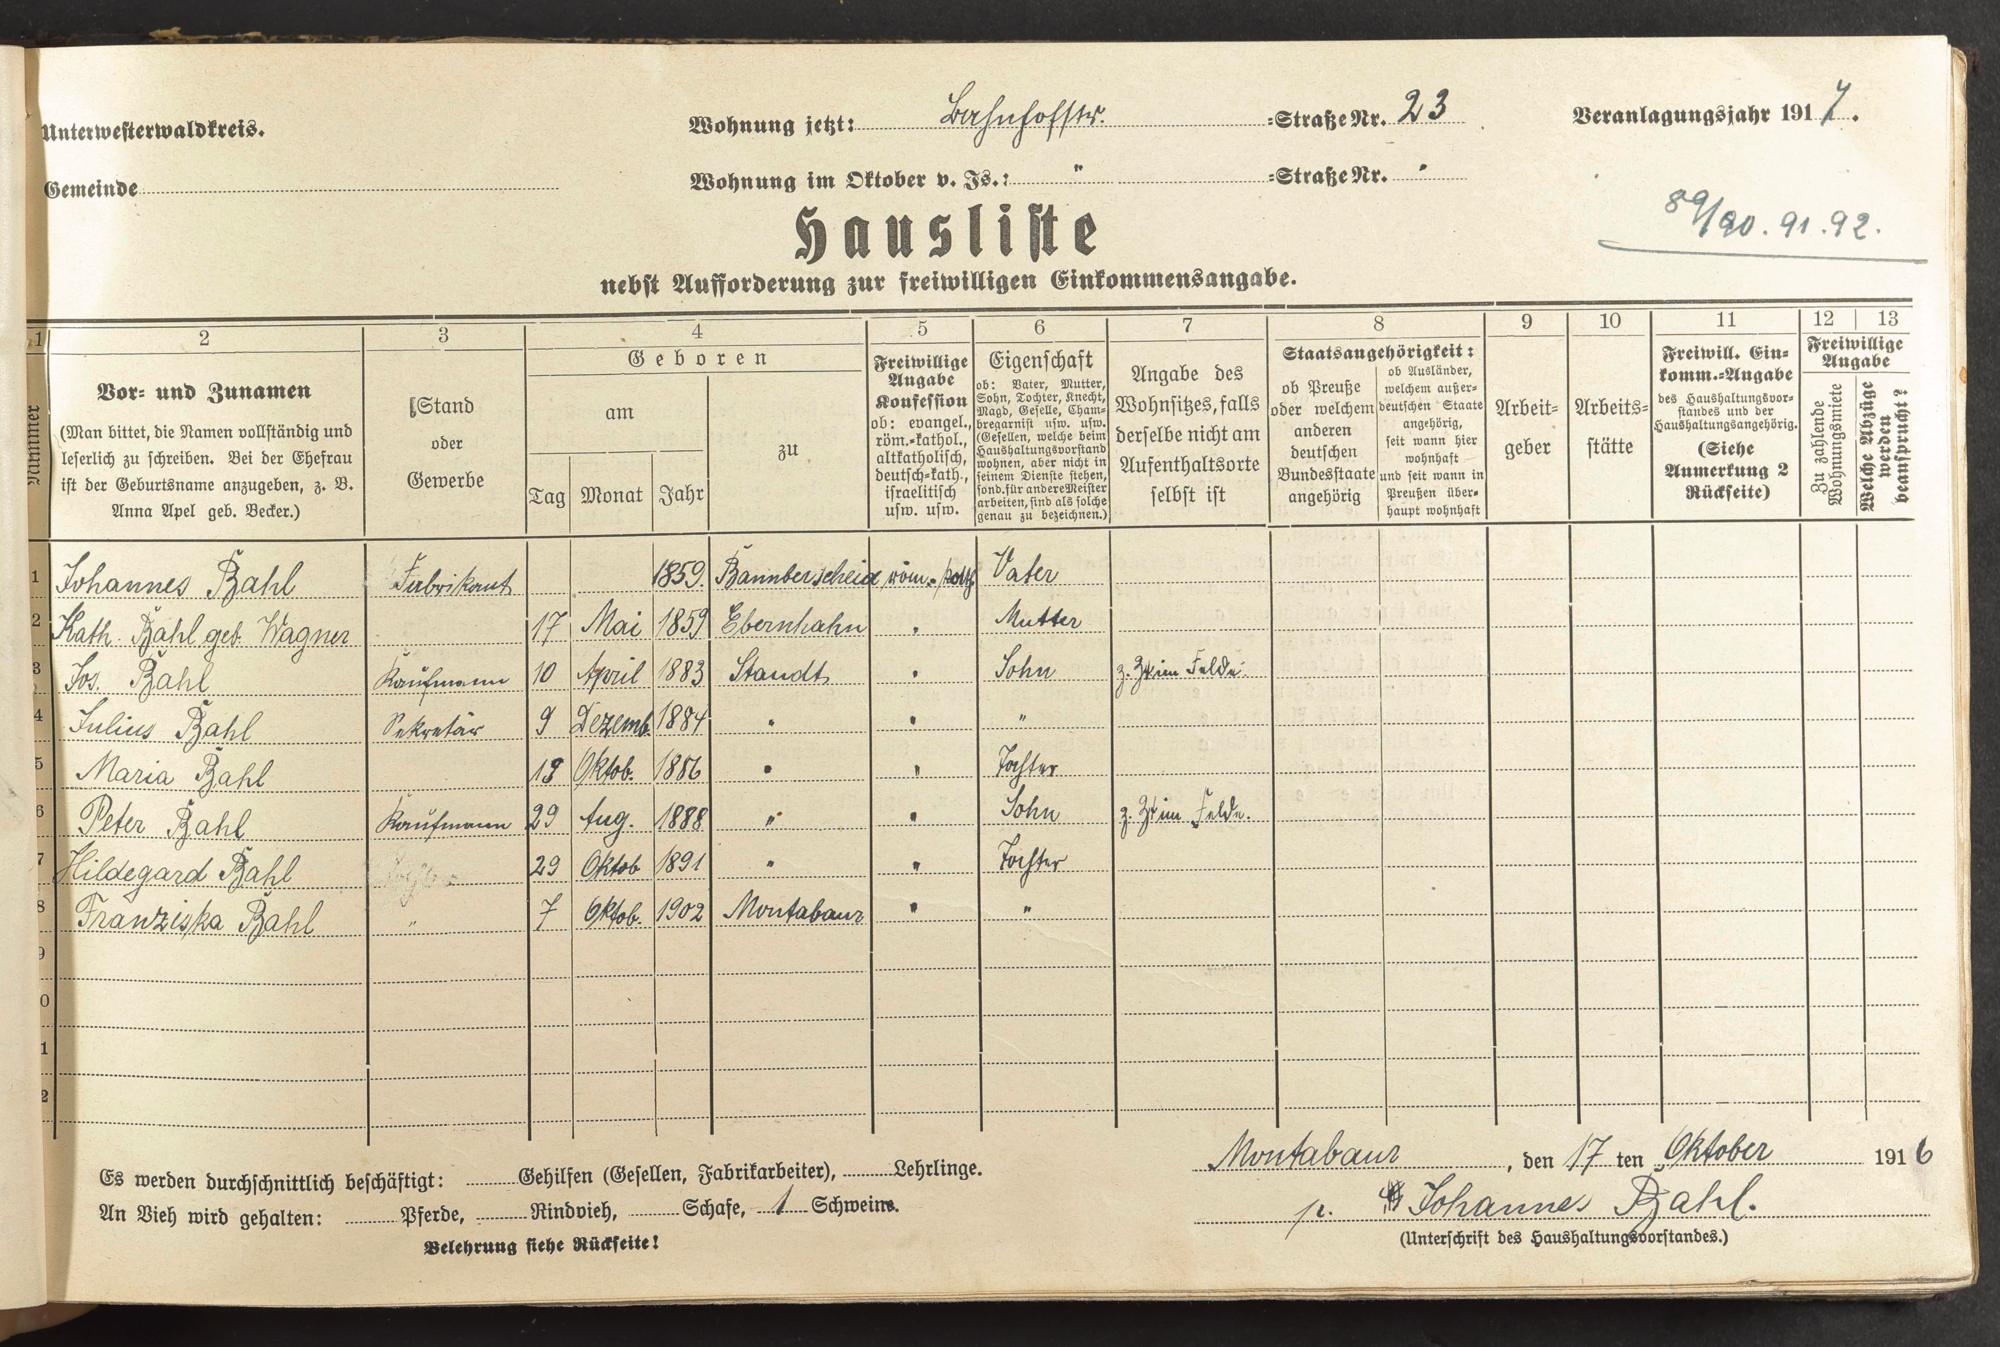 Unterwesterwaldkreis.
Wohnung jetzt: Bahnhofstr. =Straße Nr. 23
Veranlagungsjahr 1917.
Gemeinde
Wohnung im Oktober v. Js.: " =Straße Nr. "
89/90. 91. 92.
Hausliste
nebst Aufforderung zur freiwilligen Einkommensangabe.
1 2 3 4 5 6 7 8 9 10 11 12 13
Nummer
Vor= und Zunamen
(Man bittet, die Namen vollständig und
leserlich zu schreiben. Bei der Ehefrau
ist der Geburtsname anzugeben, z. B.
Anna Apel geb. Becker.)
Stand
oder
Gewerbe
Geboren
am
Tag Monat Jahr
zu
Freiwillige
Angabe
Konfession
ob: evangel.,
röm.=kathol.,
altkatholisch,
deutsch=kath.,
israelitisch
usw. usw.
Eigenschaft
ob: Vater, Mutter,
Sohn, Tochter, Knecht,
Magd, Geselle, Cham=
bregarnist usw. usw.
(Gesellen, welche beim
Haushaltungsvorstand
wohnen, aber nicht in
seinem Dienste stehen,
sond. für andere Meister
arbeiten, sind als solche
genau zu bezeichnen.)
Angabe des
Wohnsitzes, falls
derselbe nicht am
Aufenthaltsorte
selbst ist
Staatsangehörigkeit:
ob Preuße
oder welchem
anderen
deutschen
Bundesstaate
angehörig
ob Ausländer,
welchem außer=
deutschen Staate
angehörig,
seit wann hier
wohnhaft
und seit wann in
Preußen über=
haupt wohnhaft
Arbeit=
geber
Arbeits=
stätte
Freiwill. Ein=
komm.=Angabe
des Haushaltungsvor=
standes und der
Haushaltungsangehörig.
(Siehe
Anmerkung 2
Rückseite)
Freiwillige
Angabe
Zu zahlende
Wohnungsmiete
Welche Abzüge
werden
beansprucht?
1 Johannes Bahl Fabrikant 1859. Bannberscheid röm.=kath. Vater
2 Kath. Bahl geb. Wagner 17 Mai 1859 Ebernhahn " Mutter
3 Jos. Bahl Kaufmann 10 April 1883 Staudt " Sohn z. Zt im Felde
4 Julius Bahl Sekretär 9 Dezemb. 1884 " " "
5 Maria Bahl 18 Oktob. 1886 " " Tochter
6 Peter Bahl Kaufmann 29 Aug. 1888 " " Sohn z. Zt im Felde.
7 Hildegard Bahl 29 Oktob 1891 " " Tochter
8 Franziska Bahl " 7 Oktob. 1902 Montabaur " "
9
0
1
2
Es werden durchschnittlich beschäftigt: Gehilfen (Gesellen, Fabrikarbeiter), Lehrlinge.
Montabaur, den 17 ten Oktober 1916
An Vieh wird gehalten: Pferde, Rindvieh, Schafe, 1 Schweine.
p. Johannes Bahl.
Belehrung siehe Rückseite!
(Unterschrift des Haushaltungsvorstandes.)